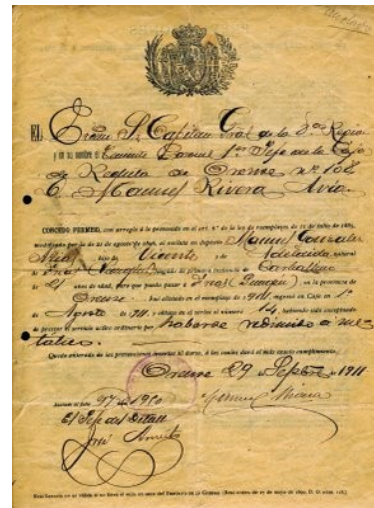 Anulado
EL Excmo. S. Capitan Gral de la 8ª Region
y en su nombre el Teniente Coronel 1er Jefe de la Caja
de Recluta de Orense nº 108
D. Manuel Rivera Avia
CONCEDO PERMISO, con arreglo á lo prevenido en el art. de la ley de reemplazos de 11 de julio de 1885,
modificada por la de 21 de agosto de 1896, al recluta en depósito Manuel Gonzalez
hijo de Vicente y de natural
de juzgado de primera instancia de Carballino
de 21 años de edad, para que pueda pasar á en la provincia de
Orense fué alistado en el reemplazo de 1911, ingresó en Caja en 1º
de Agosto de 1911 y obtuvo en el sorteo el número 14, habiendo sido exceptuado
de prestar el servicio activo ordinario por haberse redimido a me-
talico.
Queda enterado de las prevenciones insertas al dorso, á las cuales dará el más exacto cumplimiento.
Orense 29 de Sepbre de 1911
Anotado al folio 97 de 1910
El Jefe del Detall
José
Manuel Rivera
Esta licencia no es válida si no lleva el sello en seco del Ministerio de la Guerra (Real orden de 27 de mayo de 1890, D. O. núm. 118.)